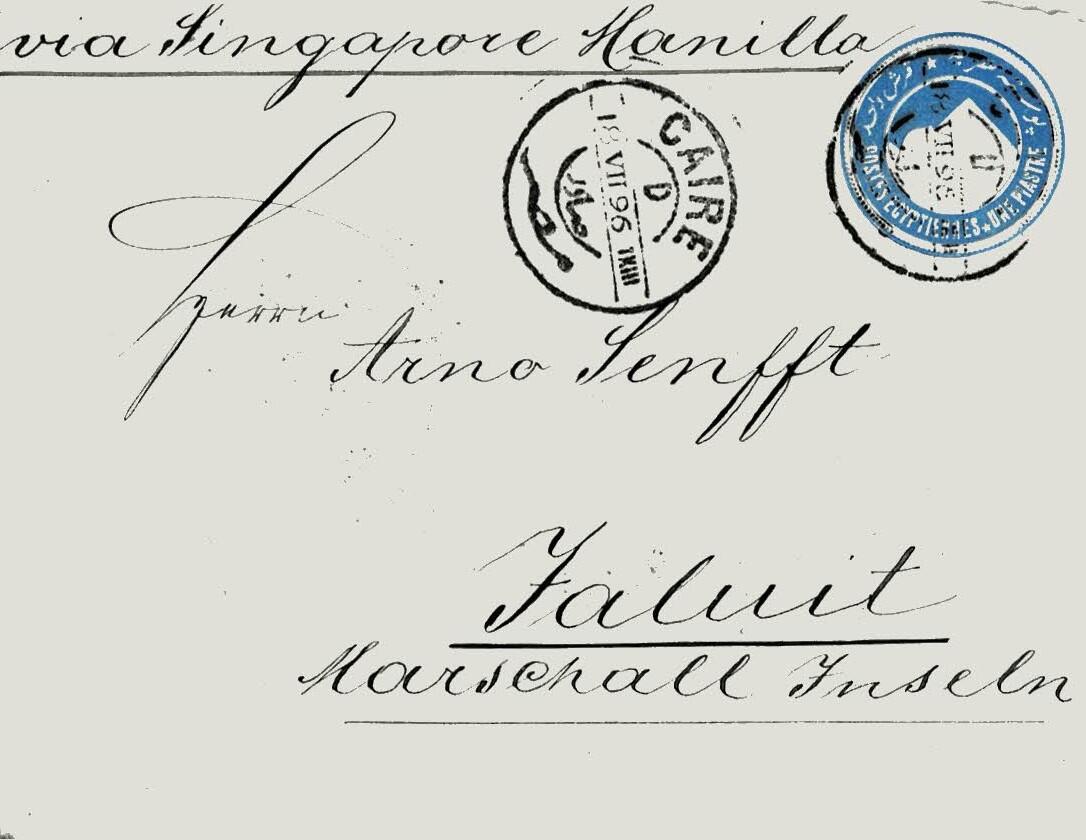 via Singapore Manilla
CAIRE
D
18 VII 96
POSTES EGYPTIENNES ★ UNE PIASTRE
D
Herrn
Arno Senfft
Jaluit
Marschall Inseln